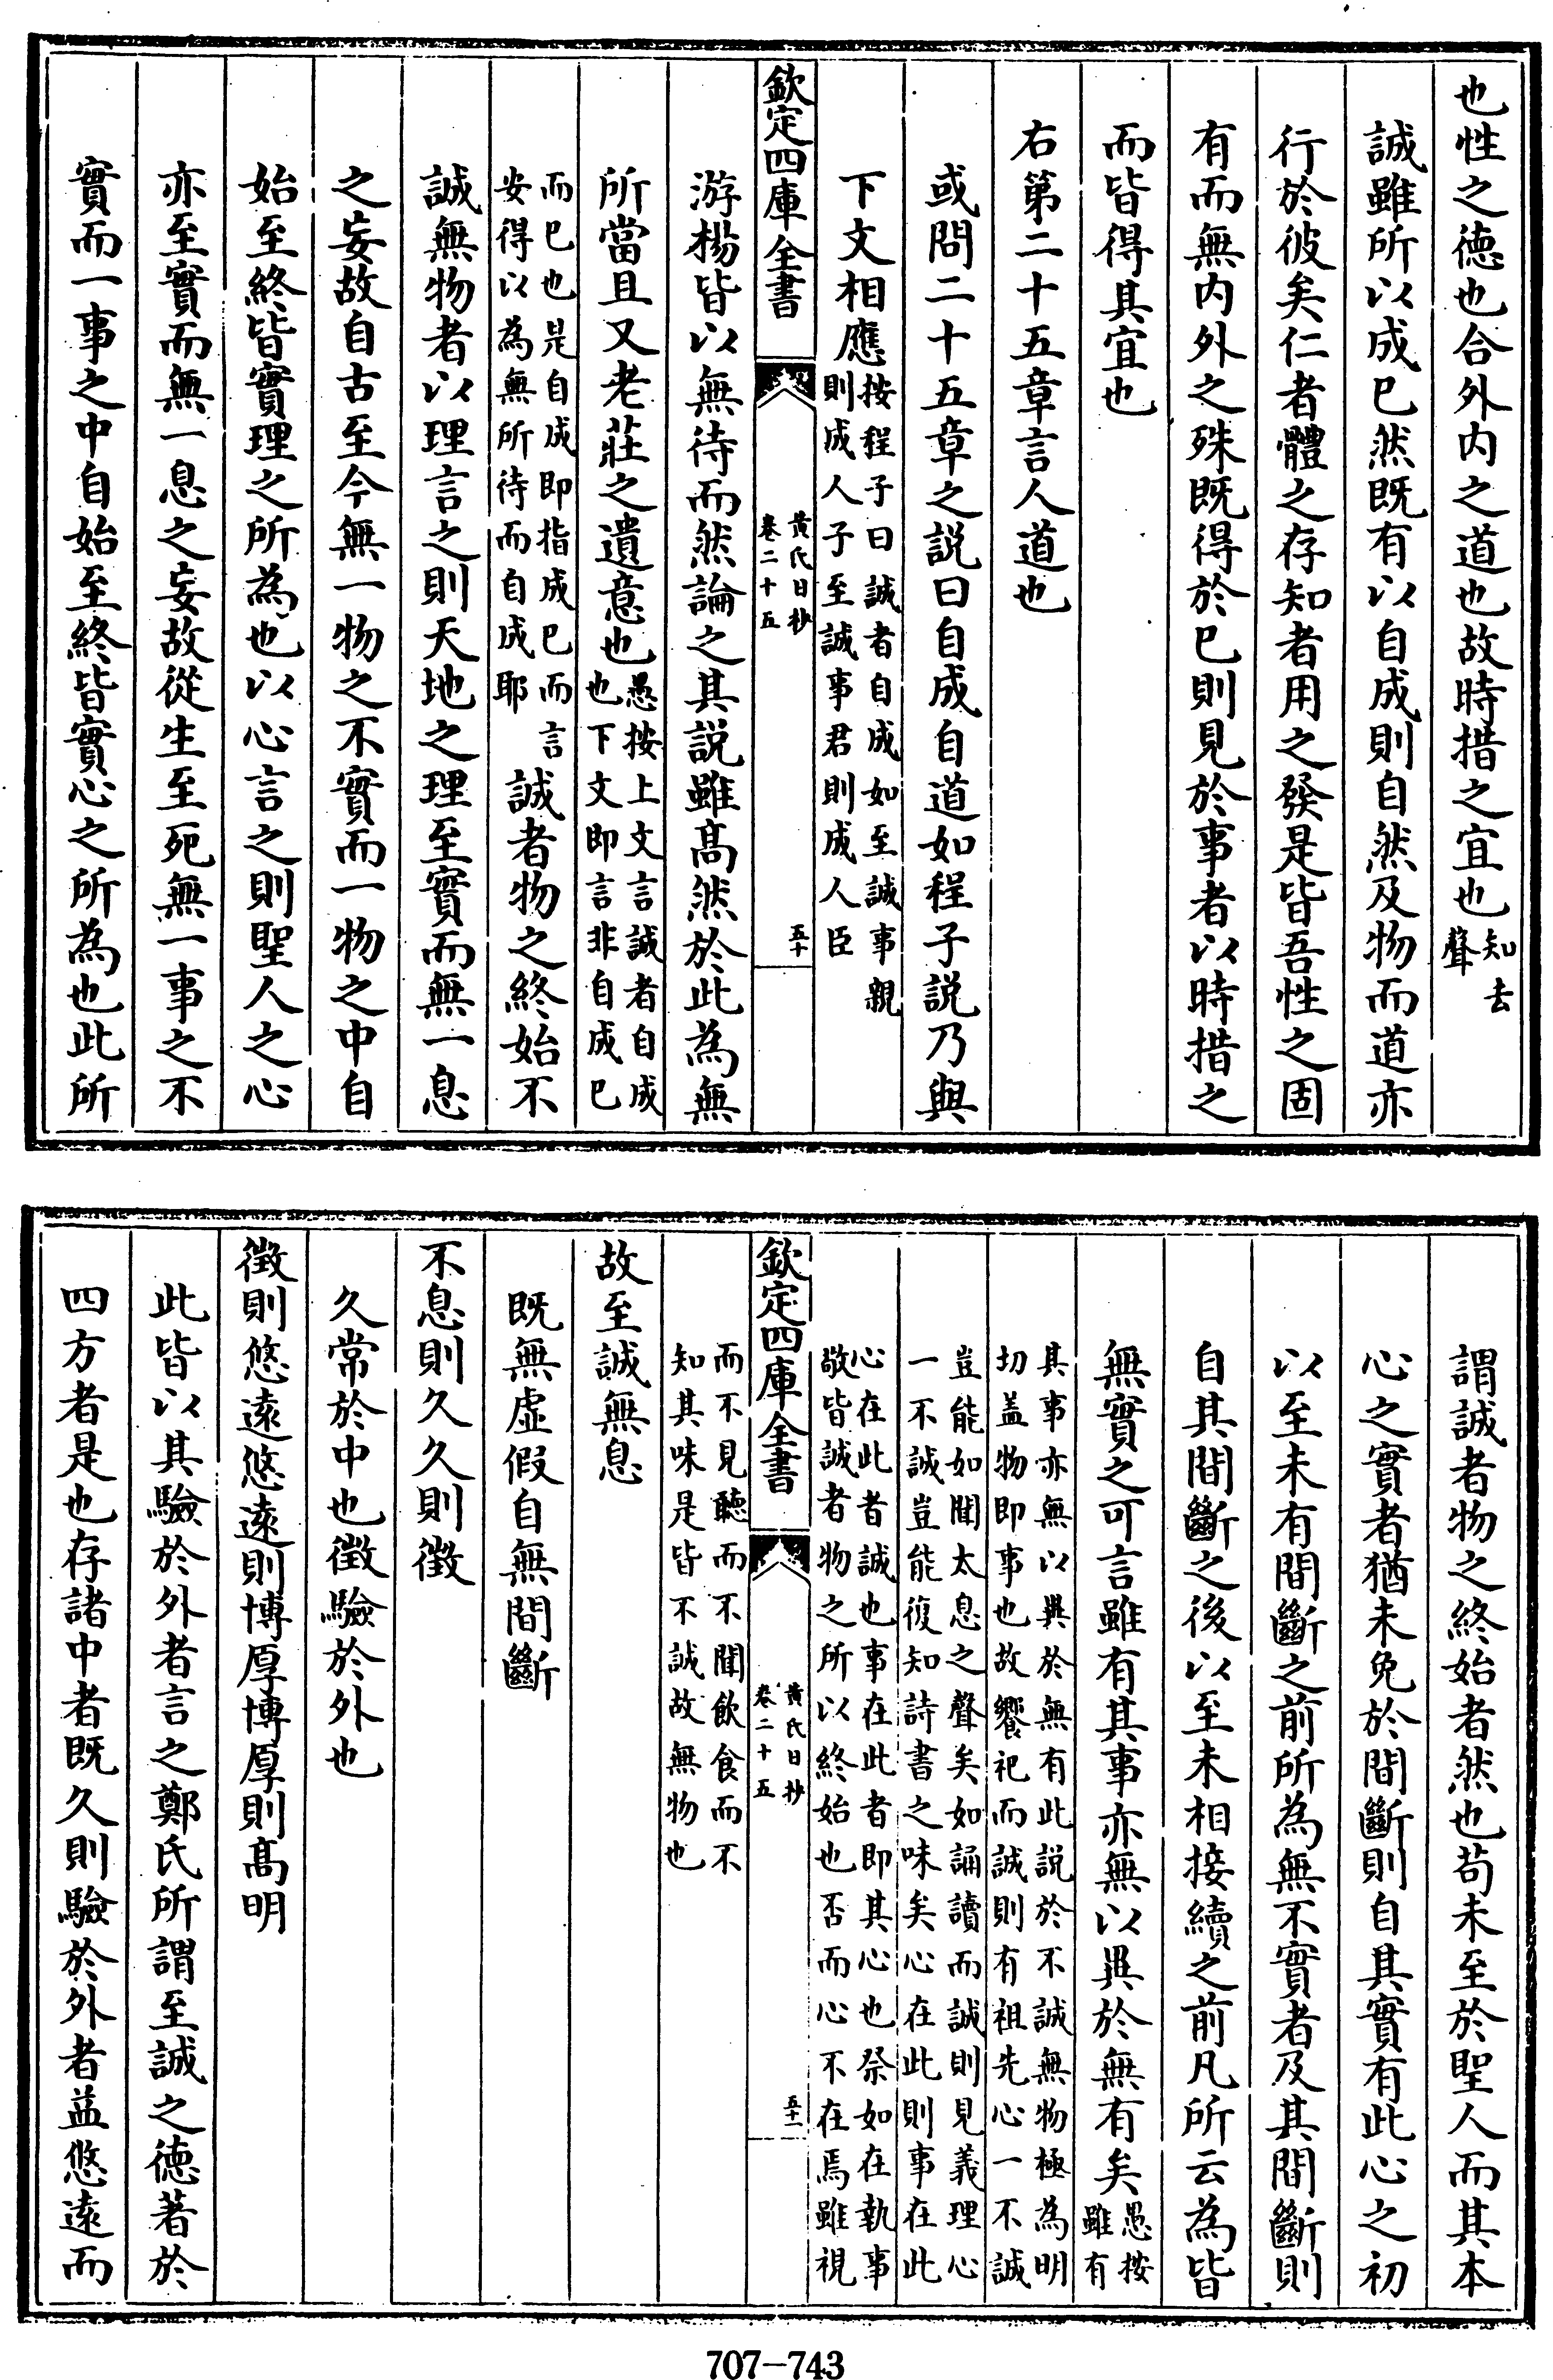 也性之德也合外內之道也故時措之宜也知去聲
誠雖所以成已然既有以自成則自然及物而道亦
行於彼矣仁者體之存知者用之發是皆吾性之固
有而無内外之殊既得於已則見於事者以時措之
而皆得其宜也
右第二十五章言人道也
或問二十五章之說曰自成自道如程子説乃與
下文相應按程子曰誠者自成如至誠事親則成人子至誠事君則成人臣
欽定四庫全書
黃氏日抄
卷二十五
五十
游楊皆以無待而然論之其説雖髙然於此為無
所當且又老莊之遺意也愚按上文言誠者自成也下文即言非自成已
而已也是自成即指成已而言安得以為無所待而自成耶誠者物之終始不
誠無物者以理言之則天地之理至實而無一息
之妄故自古至今無一物之不實而一物之中自
始至終皆實理之所為也以心言之則聖人之心
亦至實而無一息之妄故從生至死無一事之不
實而一事之中自始至終皆實心之所為也此所
謂誠者物之終始者然也苟未至於聖人而其本
心之實者猶未免於間斷則自其實有此心之初
以至未有間斷之前所為無不實者及其間斷則
自其間斷之後以至未相接續之前凡所云為皆
無實之可言雖有其事亦無以異於無有矣愚按雖有
其事亦無以異於無有此説於不誠無物極為明切盖物即事也故饗祀而誠則有祖先心一不誠
豈能如聞太息之聲矣如誦讀而誠則見義理心一不誠豈能復知詩書之味矣心在此則事在此
心在此者誠也事在此者即其心也祭如在執事敬皆誠者物之所以終始也否而心不在焉雖視
欽定四庫全書
黃氏日抄
卷二十五
五十一
而不見聽而不聞飲食而不知其味是皆不誠故無物也
故至誠無息
既無虛假自無間斷
不息則久久則徵
久常於中也徵驗於外也
徵則悠遠悠遠則博厚博厚則髙明
此皆以其驗於外者言之鄭氏所謂至誠之德著於
四方者是也存諸中者既久則驗於外者益悠遠而
707-743